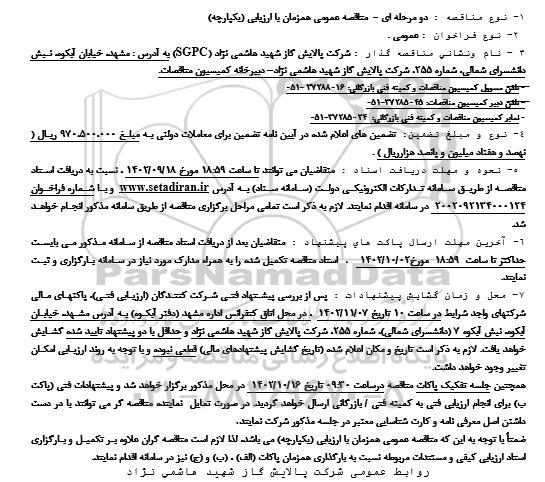 ۱- نوع مناقصه : دو مرحله ای - مناقصه عمومی همزمان با ارزیابی (یکپارچه)
۲- نوع فراخوان : عمومی .
۳ - نام ونشانی مناقصه گذار : شرکت پالایش گاز شهید هاشمی نژاد (SGPC) به آدرس : مشهد، خیابان آبکوه، نبش
دانشسرای شمالی، شماره ۲۵۵، شرکت پالایش گاز شهید هاشمی نژاد- دبیرخانه کمیسیون مناقصات.
- تلفن مسوول کمیسیون مناقصات و کمیته فنی بازرگانی: ۱۶-۳۷۲۸۸-۰۵۱
- تلفن دبیر کمیسیون مناقصات: ۴۵-۳۷۲۸۵-۰۵۱
- نمابر کمیسیون مناقصات و کمیته فنی بازرگانی: ۲۴-۳۷۲۸۵-۰۵۱
۴- نوع و مبلغ تضمین: تضمین های اعلام شده در آیین نامه تضمین برای معاملات دولتی به مبلغ ۹۷۰.۵۰۰.۰۰۰ ریال (
نهصد و هفتاد میلیون و پانصد هزارریال ) .
۵- نحوه و مهلت دریافت اسناد : متقاضیان می توانند تا ساعت ۱۸:۵۹ مورخ ۱۴۰۲/۰۹/۱۸ . نسبت به دریافت اسناد
مناقصه از طریق سامانه تدارکات الکترونیکی دولت (سامانه ستاد) به آدرس www.setadiran.ir و با شماره فراخوان
۲۰۰۲۰۹۲۱۳۴۰۰۰۱۲۴ در سامانه اقدام نمایند. لازم به ذکر است تمامی مراحل برگزاری مناقصه از طریق سامانه مذکور انجام خواهد
شد.
۶- آخرین مهلت ارسال پاکت های پیشنهاد : متقاضیان بعد از دریافت اسناد مناقصه از سامانه مذکور می بایست
حداکثر تا ساعت ۱۸:۵۹ مورخ ۱۴۰۲/۱۰/۰۲ . اسناد مناقصه تکمیل شده را به همراه مدارک مورد نیاز در سامانه بارگزاری و ثبت
نمایند.
۷- محل و زمان گشایش پیشنهادات : پس از بررسی پیشنهاد فنی شرکت کنندگان (ارزیابی فنی)، پاکتهای مالی
شرکتهای واجد شرایط در ساعت ۱۰ تاریخ ۱۴۰۲/۱۱/۰۷ . در محل اتاق کنفرانس اداره مشهد (دفتر آبکوه) به آدرس مشهد، خیابان
آبکوه، نبش آبکوه ۷ (دانشسرای شمالی)، شماره ۲۵۵، شرکت پالایش گاز شهید هاشمی نژاد و حداقل با دو پیشنهاد تایید شده گشایش
خواهد یافت. لازم به ذکر است تاریخ و مکان اعلام شده (تاریخ گشایش پیشنهادهای مالی) قطعی نبوده و با توجه به روند ارزیابی امکان
تغییر وجود خواهد داشت.
همچنین جلسه تفکیک پاکات مناقصه درساعت ۰۹:۳۰ تاریخ ۱۴۰۲/۱۰/۱۶ در محل مذکور برگزار خواهد شد و پیشنهادات فنی (پاکت
ب) برای انجام ارزیابی فنی به کمیته فنی / بازرگانی ارسال خواهد گردید. در صورت تمایل نماینده مناقصه گر می توانند با در دست
داشتن اصل معرفی نامه و کارت شناسایی معتبر در جلسه مذکور شرکت نمایند.
ضمناً با توجه به این که مناقصه عمومی همزمان با ارزیابی (یکپارچه) می باشد، لذا لازم است مناقصه گران علاوه بر تکمیل و بارگزاری
اسناد ارزیابی کیفی و مستندات مربوطه نسبت به بارگذاری همزمان پاکات (الف) ، (ب) و (ج) نیز در سامانه اقدام نمایند.
روابط عمومی شرکت پالایش گاز شهید هاشمی نژاد
ParsNamadData